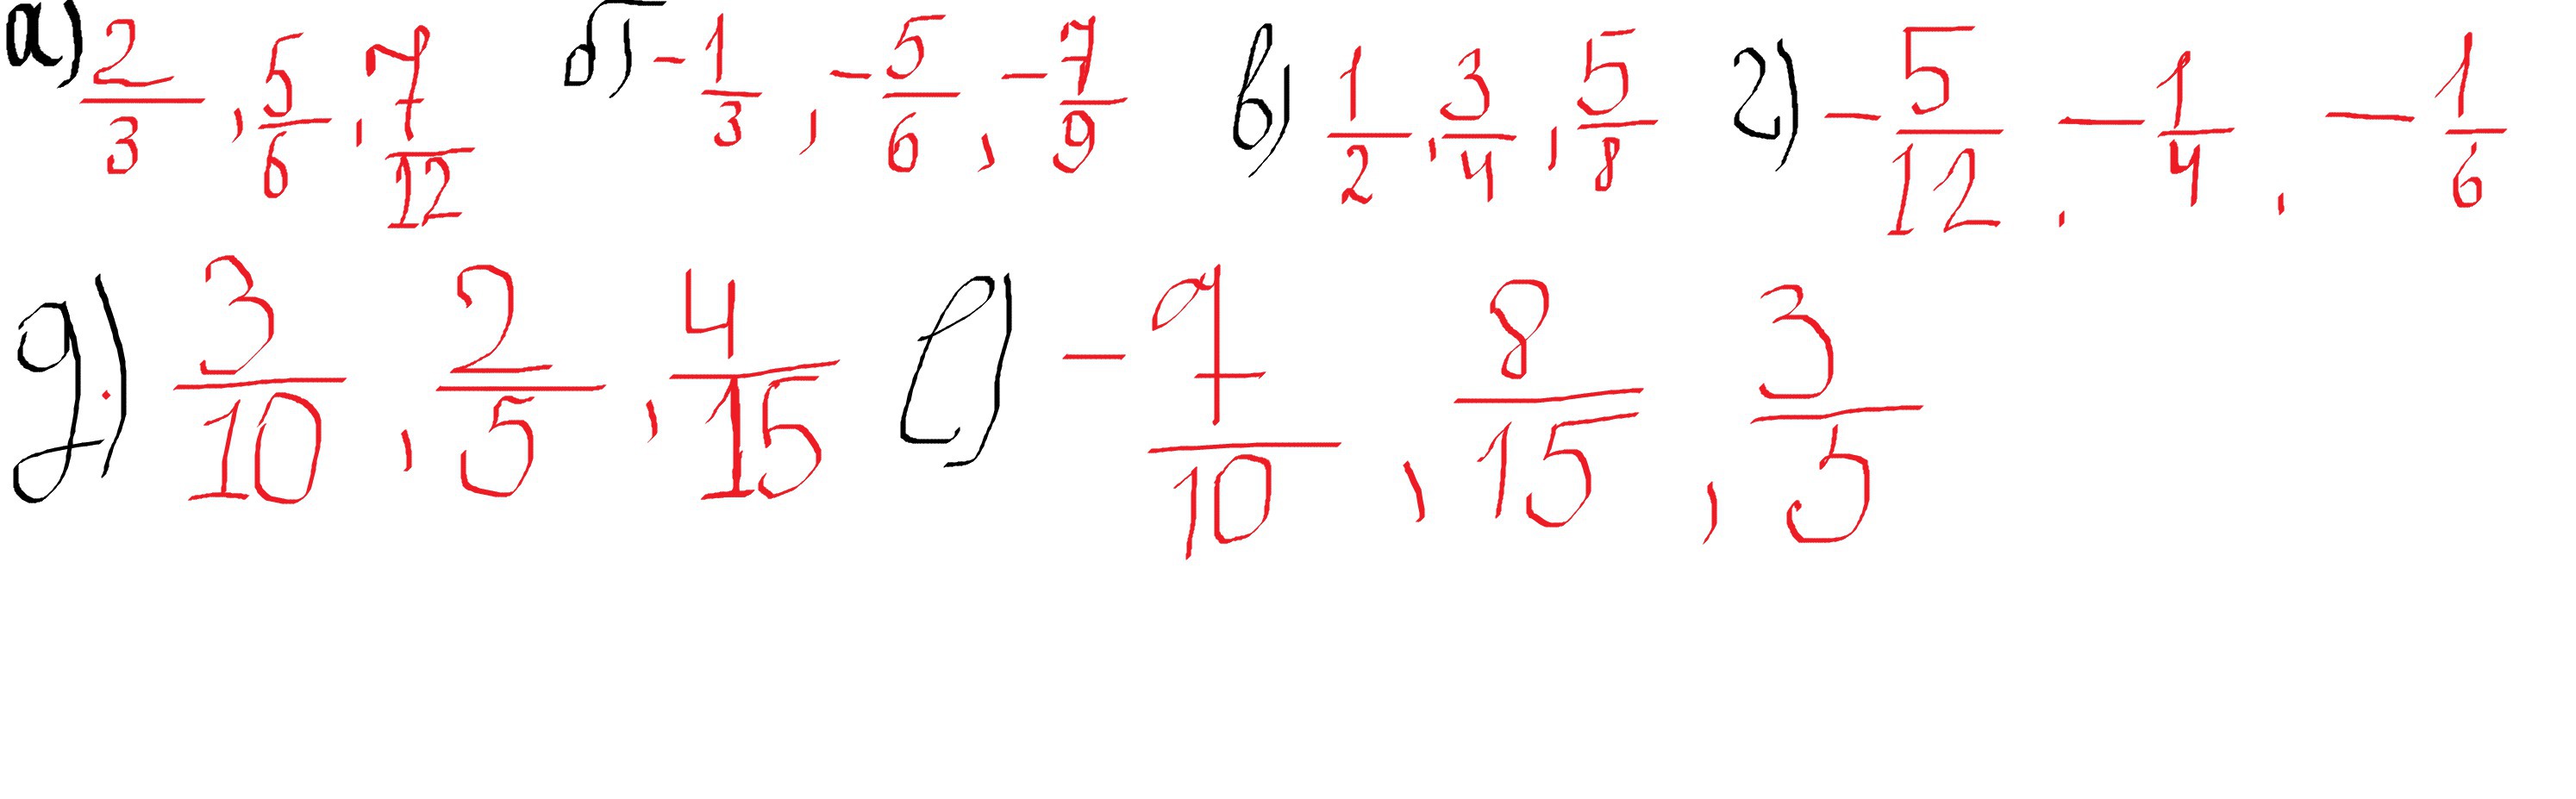 а) 2/3, 5/6, 7/12 б) -1/3, -5/6, -7/9 в) 1/2, 3/4, 5/8 г) -5/12, -1/4, -1/6
д) 3/10, 2/5, 4/15 е) -7/10, 8/15, 3/5